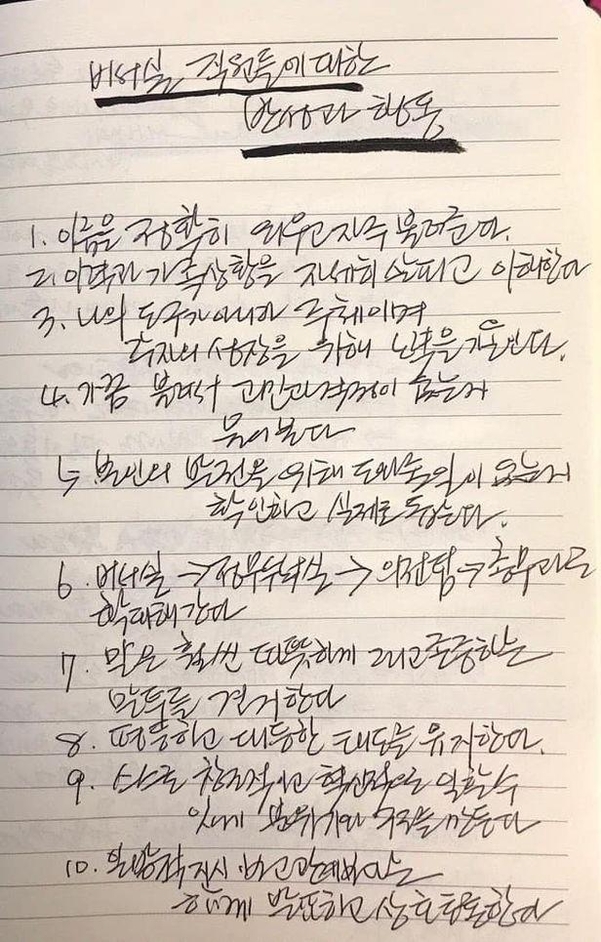 비서실 직원들에 대한
반성과 행동
1. 이름을 정확히 외우고 자주 불러준다.
2. 이력과 가족상황을 자세히 살피고 이해한다
3. 나의 도구가 아니라 주체이며
각자의 성장을 위해 노력을 기울인다.
4. 가끔 불러서 고민과 걱정이 없는지
물어본다
5. 본인의 발전을 위해 도와줄 일이 없는지
확인하고 실제로 돕는다.
6. 비서실 → 정무부시장실 → 의전팀 → 총무과로
확대해간다
7. 말은 훨씬 따뜻하게 그리고 존중하는
말투를 견지한다
8. 평등하고 대등한 태도를 유지한다.
9. 스스로 창조적이고 혁신적으로 일할 수
있게 분위기와 구조를 만든다
10. 일방적 지시·보고 관계보다는
함께 발표하고 상호 토론한다